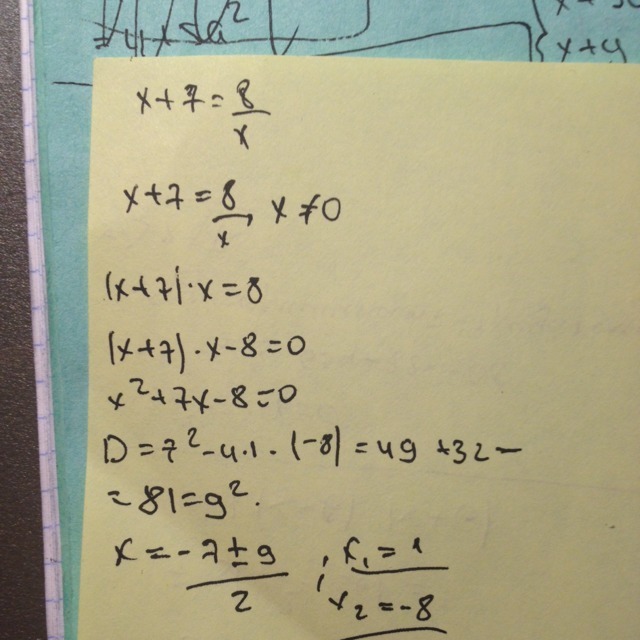 x+y
x+7=8/x
x+7=8/x, x≠0
(x+7)·x=8
(x+7)·x-8=0
x²+7x-8=0
D=7²-4·1·(-8)=49+32=
=81=9².
x=-7±9/2; x₁=1
x₂=-8